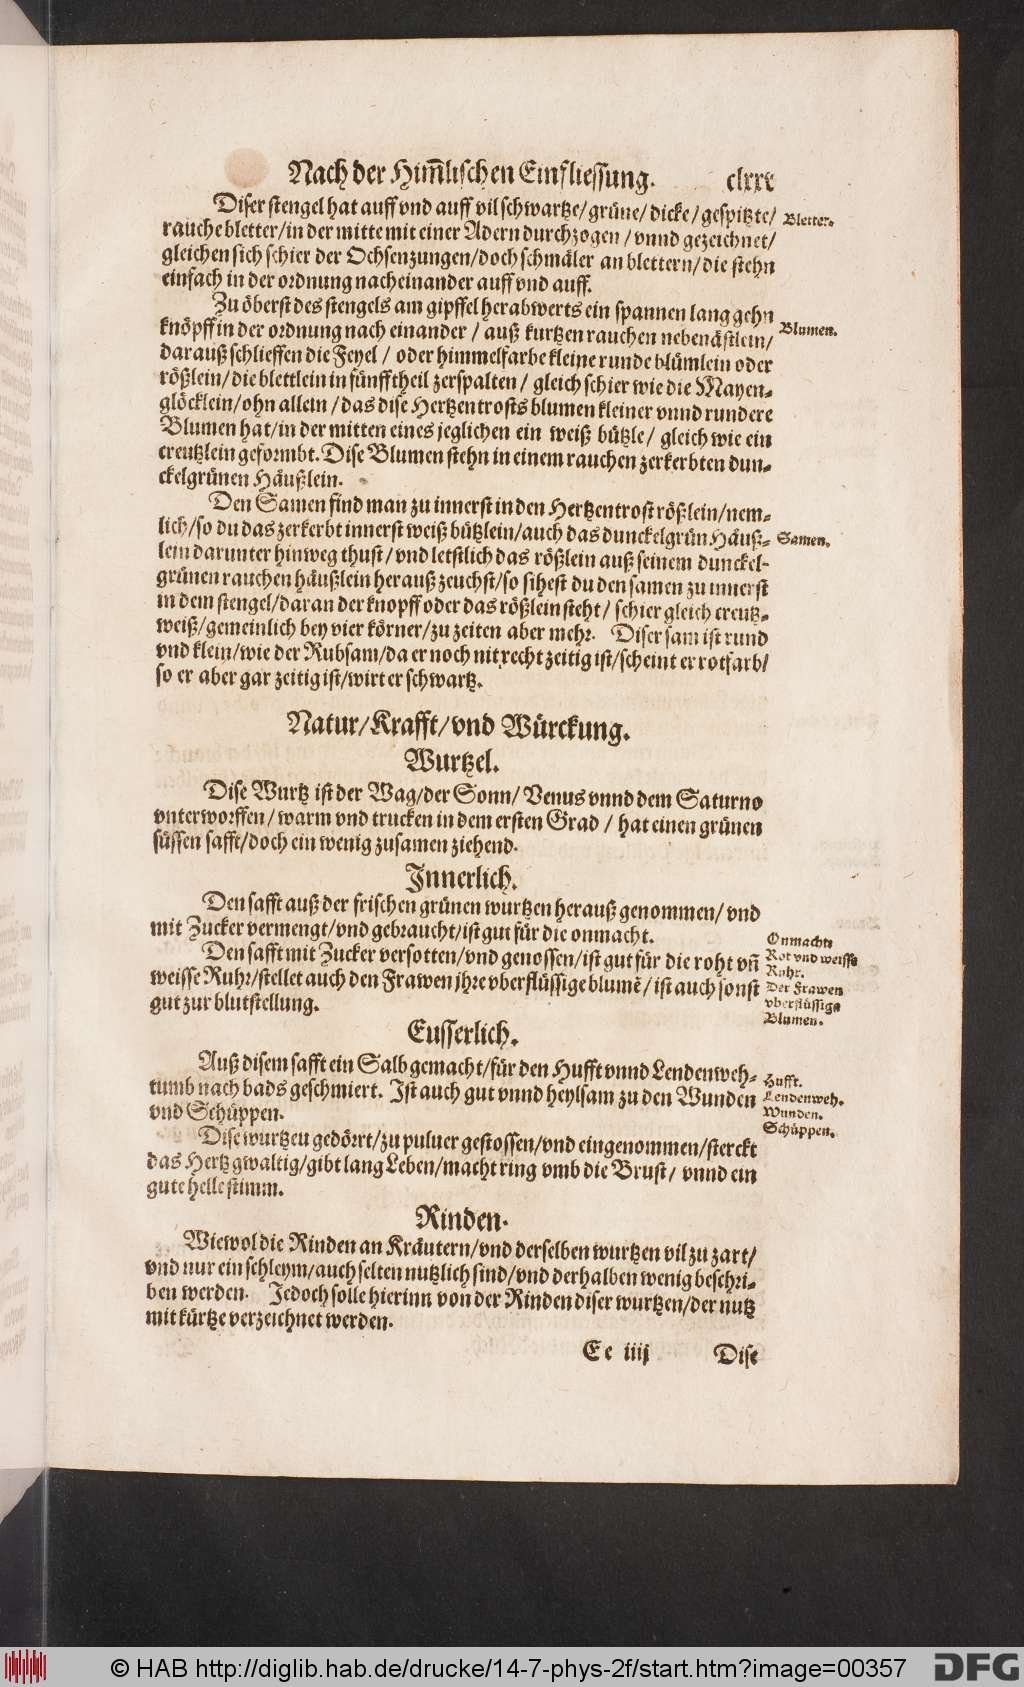 Nach der Him̃lischen Einfliessung. clxxx
Diser stengel hat auff vnd auff vil schwartze/ grüne/ dicke/ gespitzte/
Bletter.
rauche bletter/ in der mitte mit einer Adern durchzogen/ vnnd gezeichnet/
gleichen sich schier der Ochsenzungen/ doch schmäler an blettern/ die stehn
einfach in der ordnung nacheinander auff vnd auff.
Zu öberst des stengels am gipffel herabwerts ein spannen lang gehn
Blumen.
knöpff in der ordnung nach einander/ auß kurtzen rauchen nebenästlein/
darauß schlieffen die Feyel/ oder himmelfarbe kleine runde blümlein oder
rößlein/ die blettlein in fünfftheil zerspalten/ gleich schier wie die Mayen-
glöcklein/ ohn allein/ das dise Hertzentrosts blumen kleiner vnnd rundere
Blumen hat/ in der mitten eines jeglichen ein weiß bützle/ gleich wie ein
creutzlein geformbt. Dise Blumen stehn in einem rauchen zerkerbten dun-
ckelgrünen Häußlein.
Den Samen find man zu innerst in den Hertzentrost rößlein/ nem-
lich/ so du das zerkerbt innerst weiß bützlein/ auch das dunckelgrün Häuß-
Samen.
lein darunter hinweg thust/ vnd letstlich das rößlein auß seinem dunckel-
grünen rauchen häußlein herauß zeuchst/ so sihest du den samen zu innerst
in dem stengel/ daran der knopff oder das rößlein steht/ schier gleich creutz-
weiß/ gemeinlich bey vier körner/ zu zeiten aber mehr. Diser sam ist rund
vnd klein/ wie der Rubsam/ da er noch nit recht zeitig ist/ scheint er rotfarb/
so er aber gar zeitig ist/ wirt er schwartz.
Natur/ Krafft/ vnd Würckung.
Wurtzel.
Dise Wurtz ist der Wag/ der Sonn/ Venus vnnd dem Saturno
vnterworffen/ warm vnd trucken in dem ersten Grad/ hat einen grünen
süssen safft/ doch ein wenig zusamen ziehend.
Innerlich.
Den safft auß der frischen grünen wurtzen herauß genommen/ vnd
mit Zucker vermengt/ vnd gebraucht/ ist gut für die onmacht.
Onmacht.
Den safft mit Zucker versotten/ vnd genossen/ ist gut für die roht vñ
Rot vnd weisse
weisse Ruhr/ stellet auch den Frawen jhre vberflüssige blumẽ/ ist auch sonst
Ruhr.
Der Frawen
gut zur blutstellung.
vberflüssige
Blumen.
Eusserlich.
Auß disem safft ein Salb gemacht/ für den Hufft vnnd Lendenweh-
Hufft.
tumb nach bads geschmiert. Ist auch gut vnnd heylsam zu den Wunden
Lendenweh.
vnd Schüppen.
Wunden.
Schüppen.
Dise wurtzen gedörrt/ zu puluer gestossen/ vnd eingenommen/ sterckt
das Hertz gwaltig/ gibt lang Leben/ macht ring vmb die Brust/ vnnd ein
gute helle stimm.
Rinden.
Wiewol die Rinden an Kräutern/ vnd derselben wurtzen vil zu zart/
vnd nur ein schleym/ auch selten nutzlich sind/ vnd derhalben wenig beschri-
ben werden. Jedoch solle hierinn von der Rinden diser wurtzen/ der nutz
mit kürtze verzeichnet werden.
Ee iiij Dise
© HAB http://diglib.hab.de/drucke/14-7-phys-2f/start.htm?image=00357 DFG